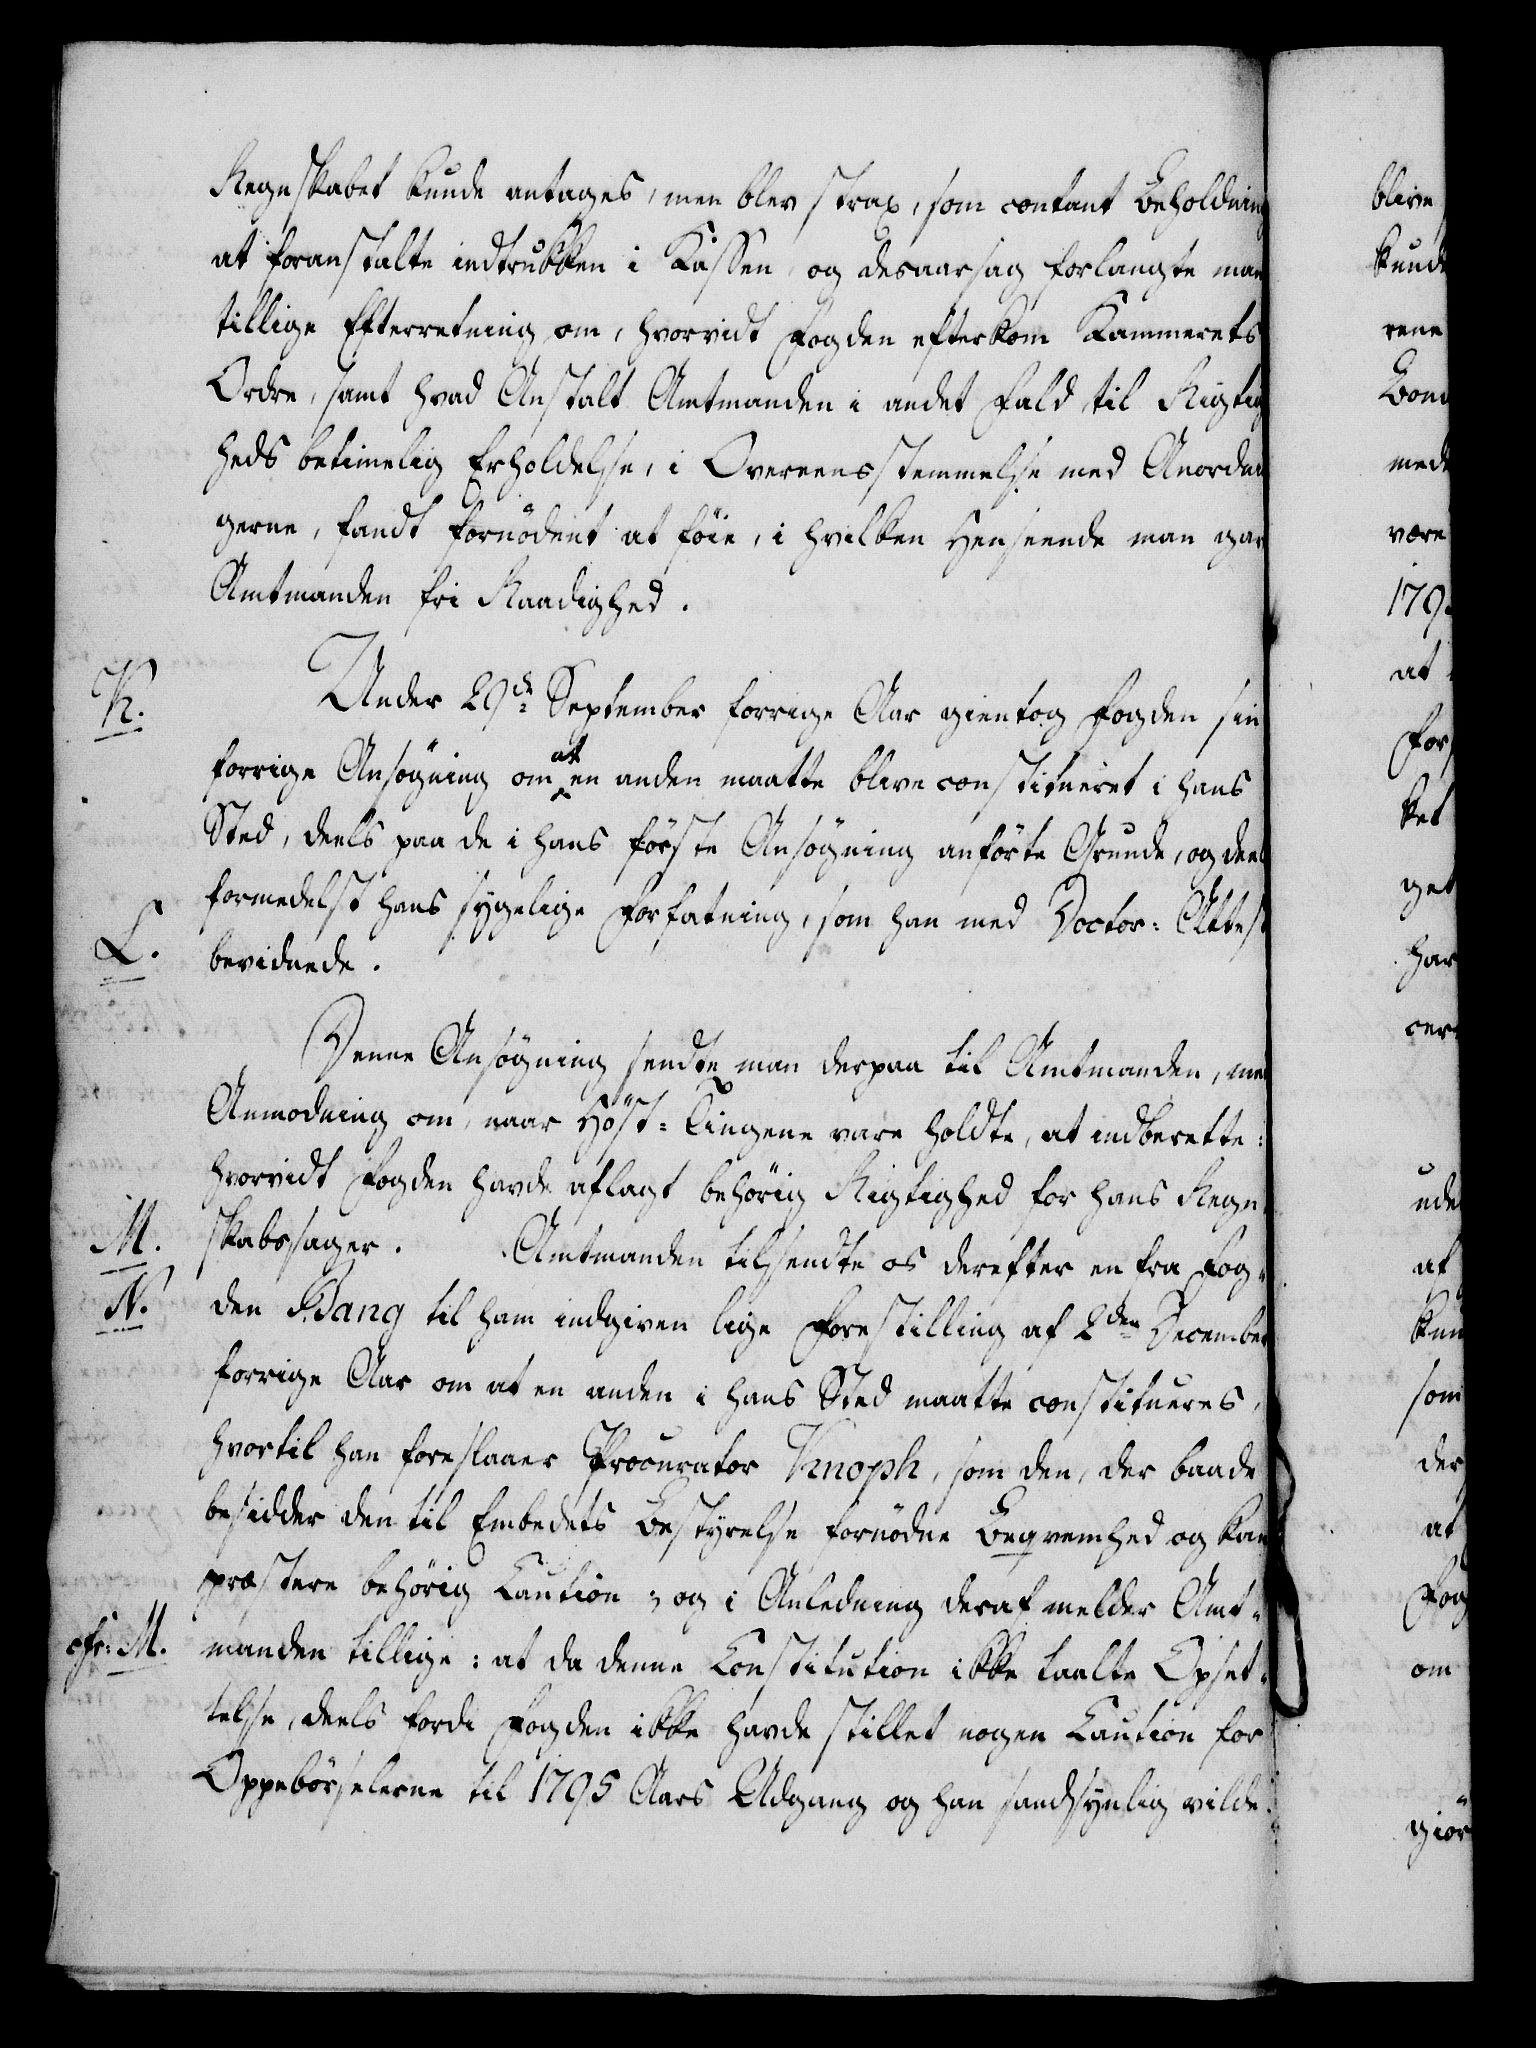 Regnskabet kunde antages, men blev strax, som contant Beholdning
at foranstalte indtrukken i Kassen, og desaarsag forlangte man
tillige Efterretning om, hvorvidt Fogden efterkom Kammerets
Ordre, samt hvad Anstalt Amtmanden i andet Fald til Rigtig
heds betimelig Erholdelse, i Overeensstemmelse med Anordnin
gerne, fandt fornödent at föie, i hvilken Henseende man gav
Amtmanden fri Raadighed.
K.
Under 29de September forrige Aar gientog Fogden sin
forrige Ansögning om at en anden maatte blive constitueret i hans
Sted, deels paa de i hans förste Ansögning anförte Grunde, og deels
formedelst hans sygelige Forfatning, som han med Doctor: Attest
L.
bevidnede.
Denne Ansögning sendte man derpaa til Amtmanden, med
Anmodning om, naar Höst=Tingene vare holdte, at indberette:
hvorvidt Fogden havde aflagt behörig Rigtighed for hans Regn
M.
skabssager. Amtmanden tilsendte os derefter en fra Fog=
N.
den Bang til ham indgiven lige Forestilling af 2den December
forrige Aar om at en anden i hans Sted maatte constitueres,
hvortil han foreslaaer Procurator Knoph, som den, der baade
besidder den til Embedets Bestyrelse fornödne Beqvemhed og kan
præstere behörig Caution; og i Anledning deraf melder Amt=
cfr: M.
manden tillige: at da denne Constitution ikke taalte Opset=
telse, deels fordi Fogden ikke havde stillet nogen Caution for
Oppebörselerne til 1795 Aars Udgang og han sandsynlig vilde
blive
kunde
rene
Bond
mede
være
179
at
For
ket
get
har
cer
ude
af
kun
som
der
at
Fog
om
giör